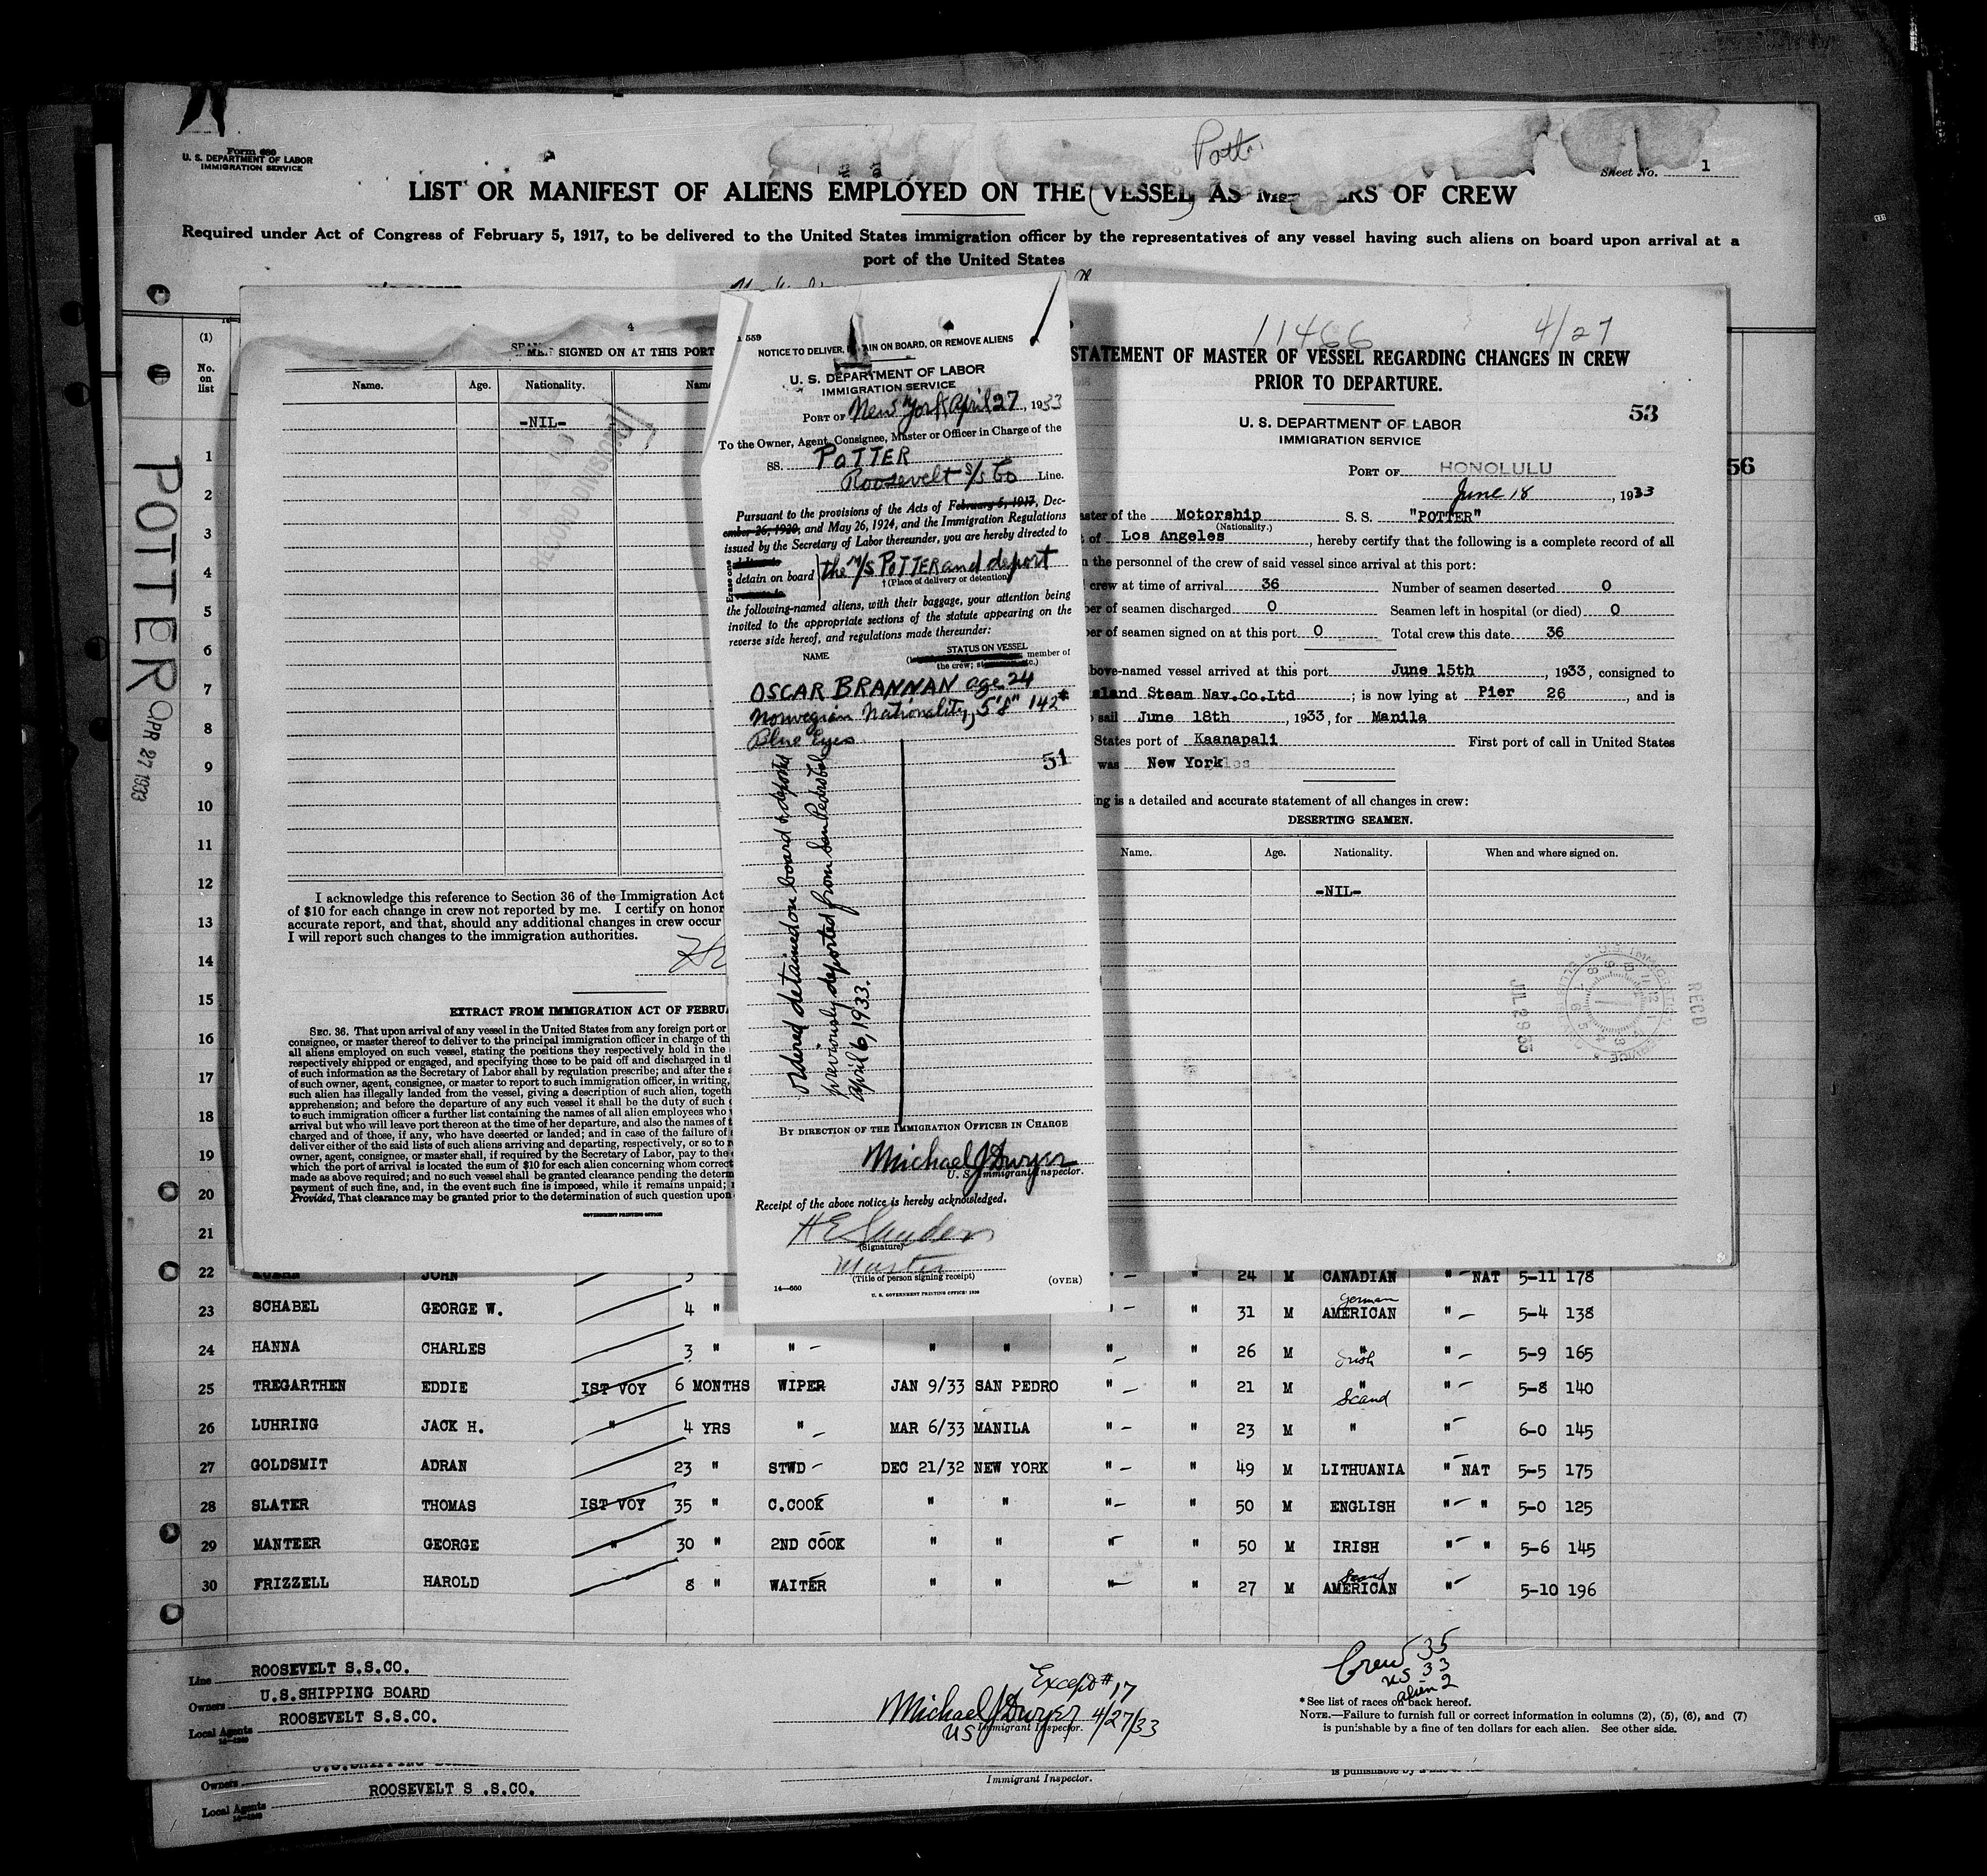 Form 680
U. S. DEPARTMENT OF LABOR
IMMIGRATION SERVICE
Sheet No. 1
LIST OR MANIFEST OF ALIENS EMPLOYED ON THE VESSEL AS
OF CREW
Required under Act of Congress of February 5, 1917, to be delivered to the United States immigration officer by the representatives of any vessel having such aliens on board upon arrival at a
port of the United States
(1)
No.
on
list
POTTER
APR 27 1933
1
2
3
4
5
6
7
8
9
10
11
12
13
14
15
16
17
18
19
20
21
4
SIGNED ON AT THIS PORT
Name. Age. Nationality.
-NIL-
RECORD DIVISION
I acknowledge this reference to Section 36 of the Immigration Act
of $10 for each change in crew not reported by me. I certify on honor
accurate report, and that, should any additional changes in crew occur
I will report such changes to the immigration authorities.
EXTRACT FROM IMMIGRATION ACT OF
SEC. 36. That upon arrival of any vessel in the United States from any foreign port or
consignee, or master thereof to deliver to the principal immigration officer in charge of
all aliens employed on such vessel, stating the positions they respectively hold in the
respectively shipped or engaged, and specifying those to be paid off and discharged in
of such information as the Secretary of Labor shall by regulation prescribe; and after the
of such owner, agent, consignee, or master to report to such immigration officer, in writing,
such alien has illegally landed from the vessel, giving a description of such alien,
apprehension; and before the departure of any such vessel it shall be the duty of such
to such immigration officer a further list containing the names of all alien employees who
arrival but who will leave port thereon at the time of her departure, and also the names of
charged and of those, if any, who have deserted or landed; and in case of the failure of
deliver either of the said lists of such aliens arriving and departing, respectively, or so to
owner, agent, consignee, or master shall, if required by the Secretary of Labor, pay to the
which the port of arrival is located the sum of $10 for each alien concerning whom correct
made as above required; and no such vessel shall be granted clearance pending the
payment of such fine, and, in the event such fine is imposed, while it remains unpaid;
Provided, That clearance may be granted prior to the determination of such question upon
GOVERNMENT PRINTING OFFICE
559
NOTICE TO DELIVER, ON BOARD, OR REMOVE ALIENS
U. S. DEPARTMENT OF LABOR
IMMIGRATION SERVICE
PORT OF New York April 27, 1933
To the Owner, Agent, Consignee, Master or Officer in Charge of the
SS. POTTER
Roosevelt S/S Co Line.
Pursuant to the provisions of the Acts of February 5, 1917, Dec-
ember 26, 1920, and May 26, 1924, and the Immigration Regulations
issued by the Secretary of Labor thereunder, you are hereby directed to
Erase one
detain on board the M/S POTTER and deport
†(Place of delivery or detention)
the following-named aliens, with their baggage, your attention being
invited to the appropriate sections of the statute appearing on the
reverse side hereof, and regulations made thereunder:
NAME STATUS ON VESSEL
member of
the crew;
OSCAR BRANNAN age 24
Norwegian Nationality, 5'8" 142#
Blue Eyes
51
ordered detained on board & deported
previously deported from San Pedro Cal
April 6, 1933.
BY DIRECTION OF THE IMMIGRATION OFFICER IN CHARGE
Michael J Dwyer
U. S. Immigrant Inspector.
Receipt of the above notice is hereby acknowledged.
(Signature)
Master
(Title of person signing receipt)
14—600 (OVER)
U. S. GOVERNMENT PRINTING OFFICE: 1930
11466 4/27
STATEMENT OF MASTER OF VESSEL REGARDING CHANGES IN CREW
PRIOR TO DEPARTURE.
53
U. S. DEPARTMENT OF LABOR
IMMIGRATION SERVICE
56
PORT OF HONOLULU
June 18, 1933
of the Motorship S. S. "POTTER"
(Nationality.)
of Los Angeles, hereby certify that the following is a complete record of all
the personnel of the crew of said vessel since arrival at this port:
crew at time of arrival 36 Number of seamen deserted 0
of seamen discharged 0 Seamen left in hospital (or died) 0
of seamen signed on at this port 0 Total crew this date 36
above-named vessel arrived at this port June 15th, 1933, consigned to
Steam Nav.Co.Ltd; is now lying at Pier 26, and is
sail June 18th, 1933, for Manila
States port of Kaanapali First port of call in United States
was New York
is a detailed and accurate statement of all changes in crew:
DESERTING SEAMEN.
Name. Age. Nationality. When and where signed on.
-NIL-
RECD
22 JOHN 24 M CANADIAN " NAT 5-11 178
23 SCHABEL GEORGE W. 4 " " " 31 M German AMERICAN " 5-4 138
24 HANNA CHARLES 3 " " " " " " 26 M " 5-9 165
25 TREGARTHEN EDDIE IST VOY 6 MONTHS WIPER JAN 9/33 SAN PEDRO " " 21 M Irish " " 5-8 140
26 LUHRING JACK H. " 4 YRS " MAR 6/33 MANILA " " 23 M Scand " " 6-0 145
27 GOLDSMIT ADRAN 23 " STWD DEC 21/32 NEW YORK " " 49 M LITHUANIA " NAT 5-5 175
28 SLATER THOMAS IST VOY 35 " C.COOK " " " " 50 M ENGLISH " " 5-0 125
29 MANTEER GEORGE " 30 " 2ND COOK " " " " 50 M IRISH " " 5-6 145
30 FRIZZELL HAROLD 8 " WAITER " " " " 27 M Scand AMERICAN " 5-10 196
Line ROOSEVELT S.S.CO.
Owners U.S.SHIPPING BOARD
Local Agents ROOSEVELT S.S.CO.
Except #17
Michael J Dwyer 4/27/33
US Immigrant Inspector.
Crew 35
US 33
alien 2
* See list of races on back hereof.
NOTE.—Failure to furnish full or correct information in columns (2), (5), (6), and (7)
is punishable by a fine of ten dollars for each alien. See other side.
Owners
Local Agents ROOSEVELT S .S.CO.
Immigrant Inspector.